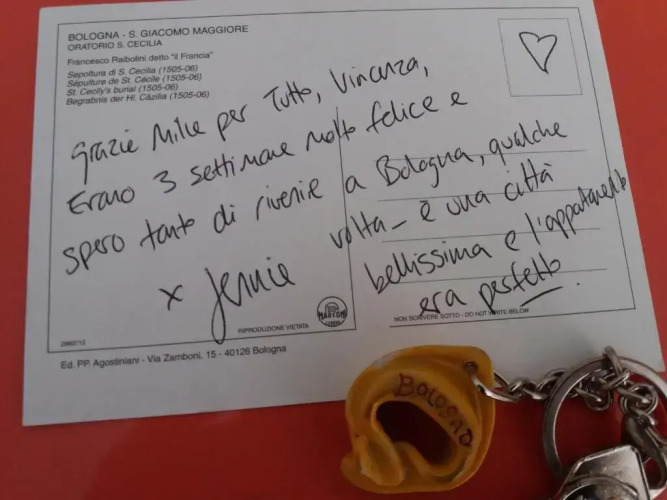 BOLOGNA - S. GIACOMO MAGGIORE
ORATORIO S. CECILIA
Francesco Raibolini detto "il Francia"
Sepoltura di S. Cecilia (1505-06)
Sépulture de St. Cécile (1505-06)
St. Cecily's burial (1505-06)
Begrabnis der Hl. Cäzilia (1505-06)
Grazie Mille per Tutto, Vincenza,
Erano 3 settimane molto felice e
spero tanto di rivenire a Bologna, qualche
volta - è una città
bellissima e l'appartamento
era perfetto.
x Jennie
RIPRODUZIONE VIETATA
NON SCRIVERE SOTTO - DO NOT WRITE BELOW
Ed. PP. Agostiniani - Via Zamboni, 15 - 40126 Bologna
BOLOGNA